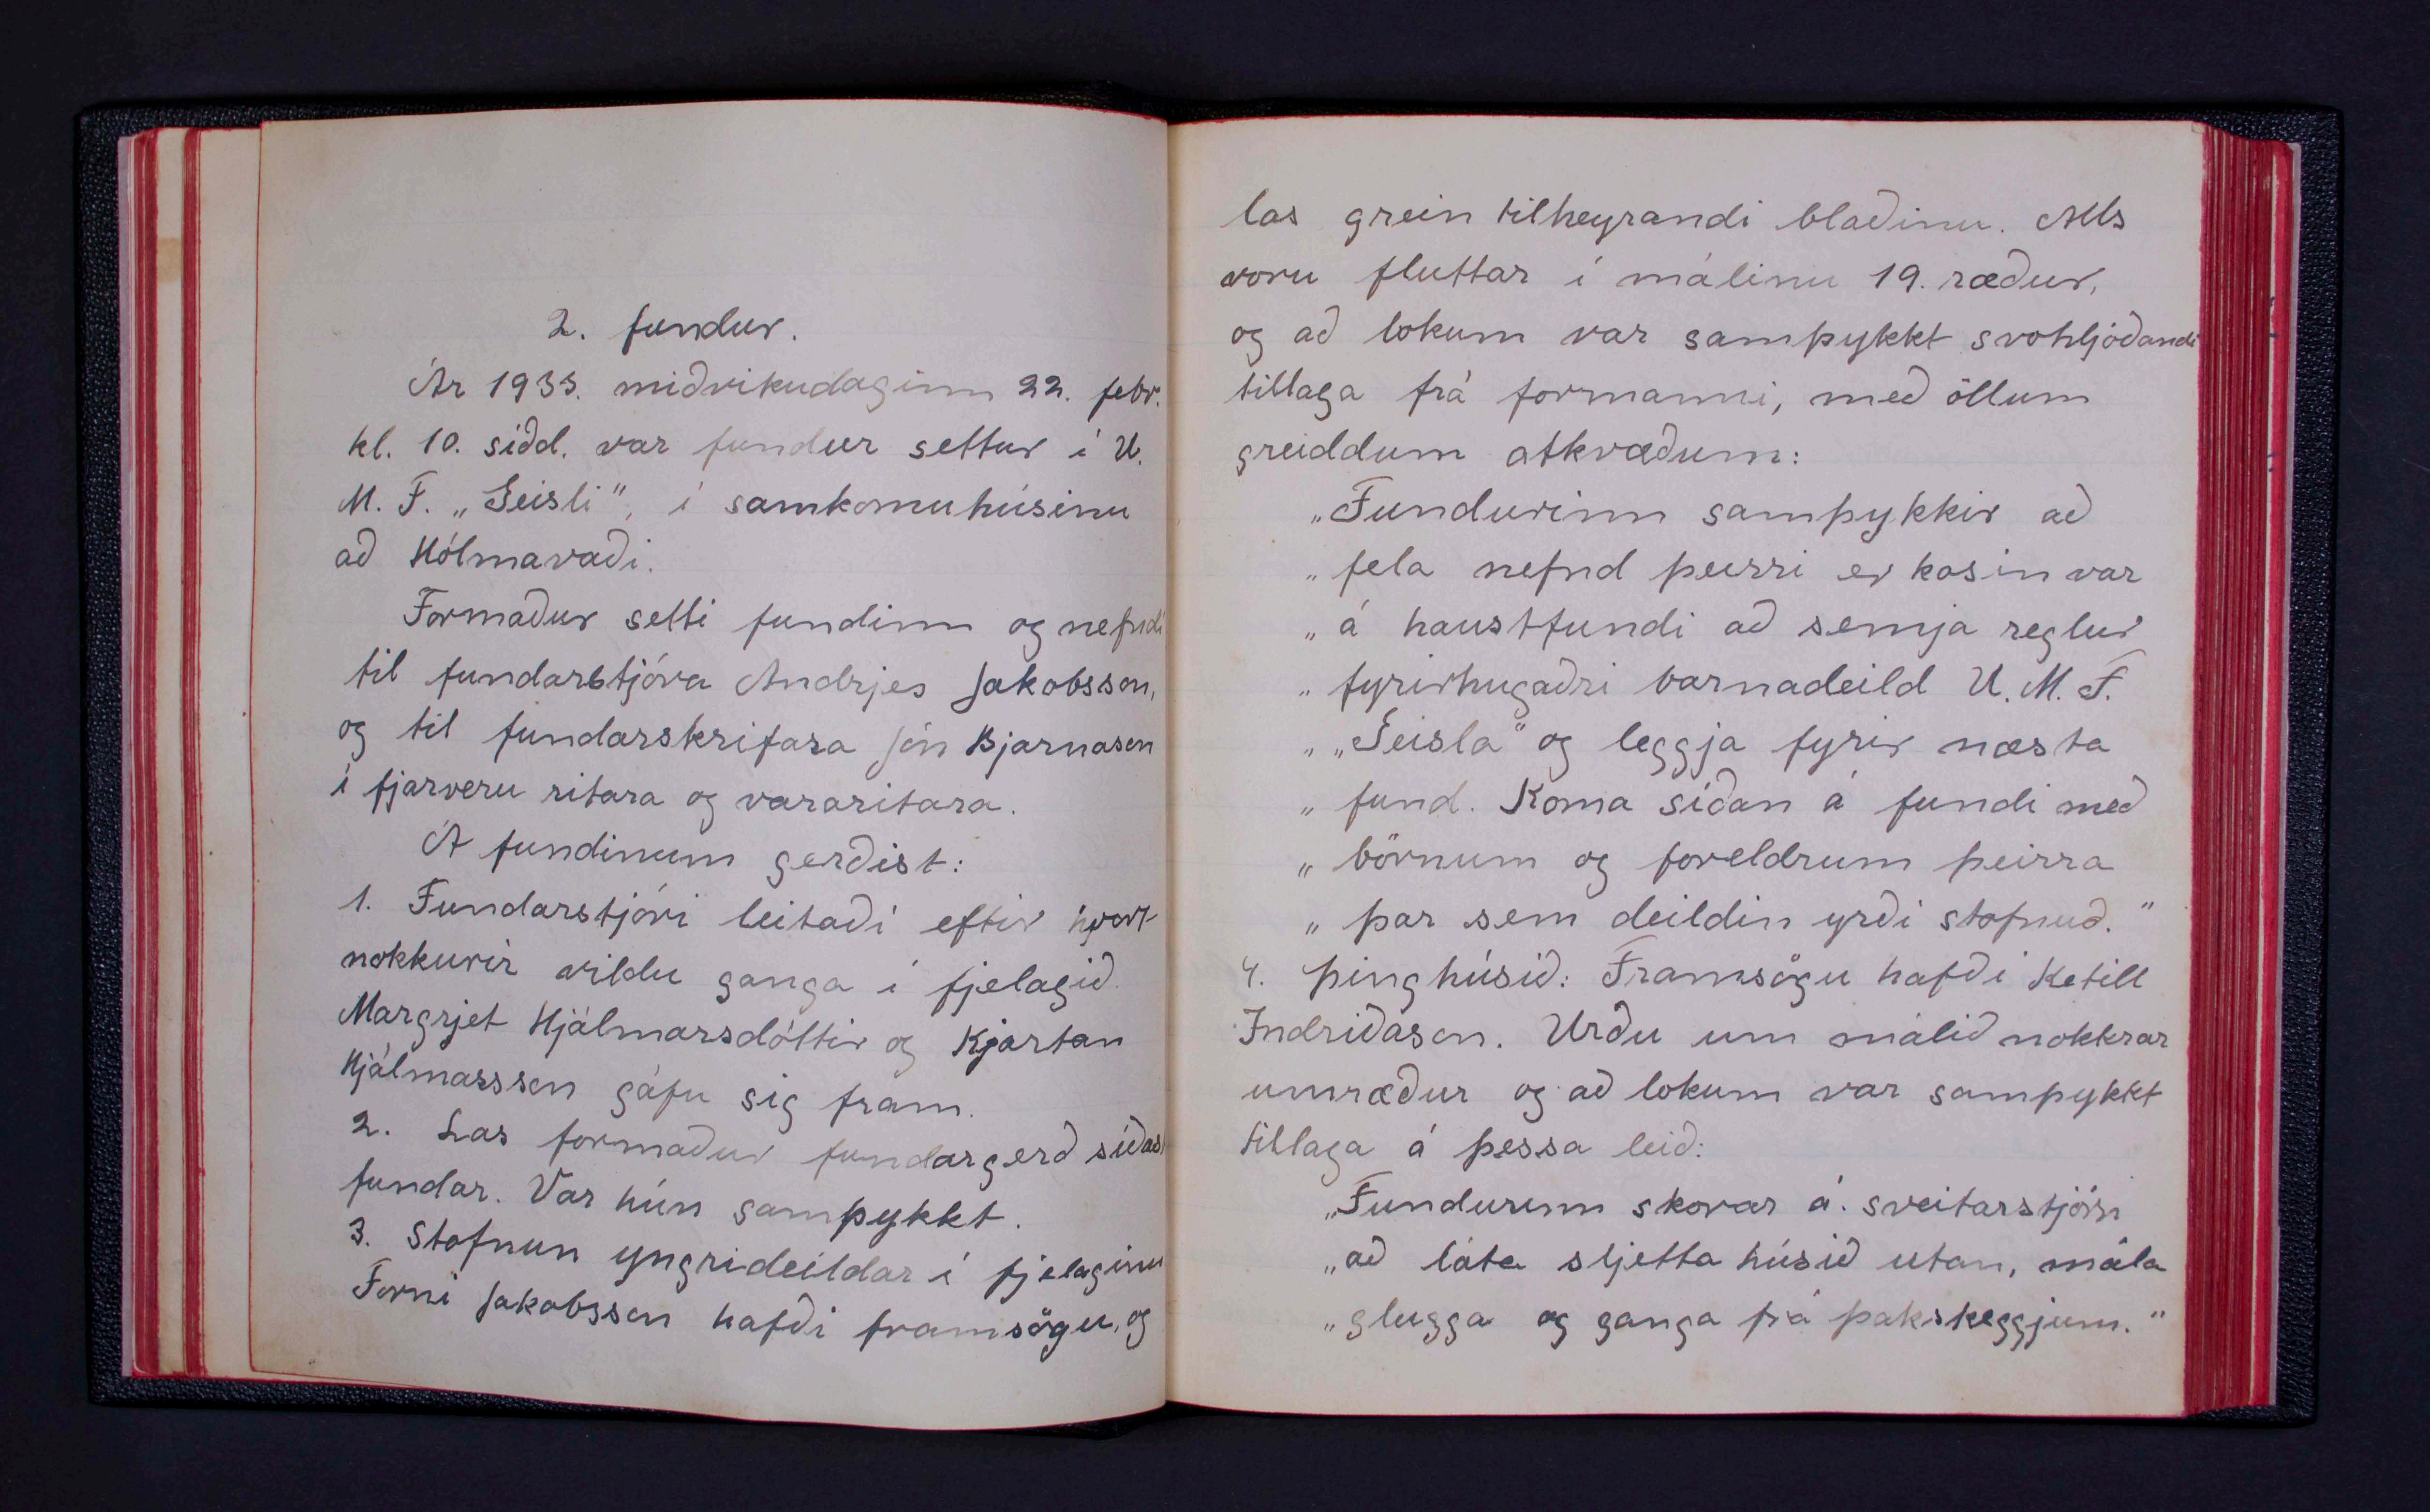 2. fundur.
Ár 1933. miðvikudaginn 22. febr.
kl. 10. síðd. var fundur settur í U.
M. F. „Geisli", í samkomuhúsinu
að Hólmavaði.
Formaður setti fundinn og nefndi
til fundarstjóra Andrjes Jakobsson,
og til fundarskrifara Jón Bjarnason
í fjarveru ritara og vararitara.
Á fundinum gerðist:
1. Fundarstjóri leitaði eftir hvort
nokkurir vildu ganga í fjelagið.
Margrjet Hjálmarsdóttir og Kjartan
Hjálmarsson gáfu sig fram.
2. Las formaður fundargerð síðas
fundar. Var hún samþykkt.
3. Stofnun yngrideildar í fjelaginu
Forni Jakobsson hafði framsögu, og
las grein tilheyrandi blaðinu. Alls
voru fluttar í málinu 19. ræður,
og að lokum var samþykkt svohljóðandi
tillaga frá formanni, með öllum
greiddum atkvæðum:
„Fundurinn samþykkir að
„ fela nefnd þeirri er kosin var
„ á haustfundi að semja reglur
„ fyrirhugaðri barnadeild U. M. F.
„ „Geisla" og leggja fyrir næsta
„ fund. Koma síðan á fundi með
„ börnum og foreldrum þeirra
„ þar sem deildin yrði stofnuð."
4. Þinghúsið: Framsögu hafði Ketill
Indriðason. Urðu um málið nokkrar
umræður og að lokum var samþykkt
tillaga á þessa leið:
„Fundurinn skorar á. sveitarstjórn
„að láta sljetta húsið utan, mála
„glugga og ganga frá þakskeggjum."